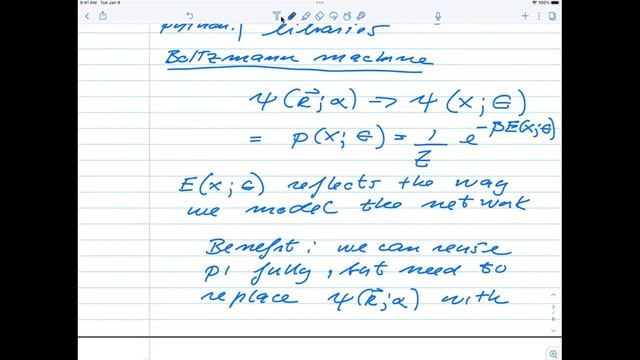 9:41 AM Tue Jan 9
100%
python / libraries
Boltzmann machine
ψ(R⃗;α) => ψ(X;Θ)
= p(X;Θ) = 1/Z e^{-βE(X;Θ)}
E(X;Θ) reflects the way
we model the network
Benefit : we can reuse
p1 fully, but need to
replace ψ(R⃗;α) with